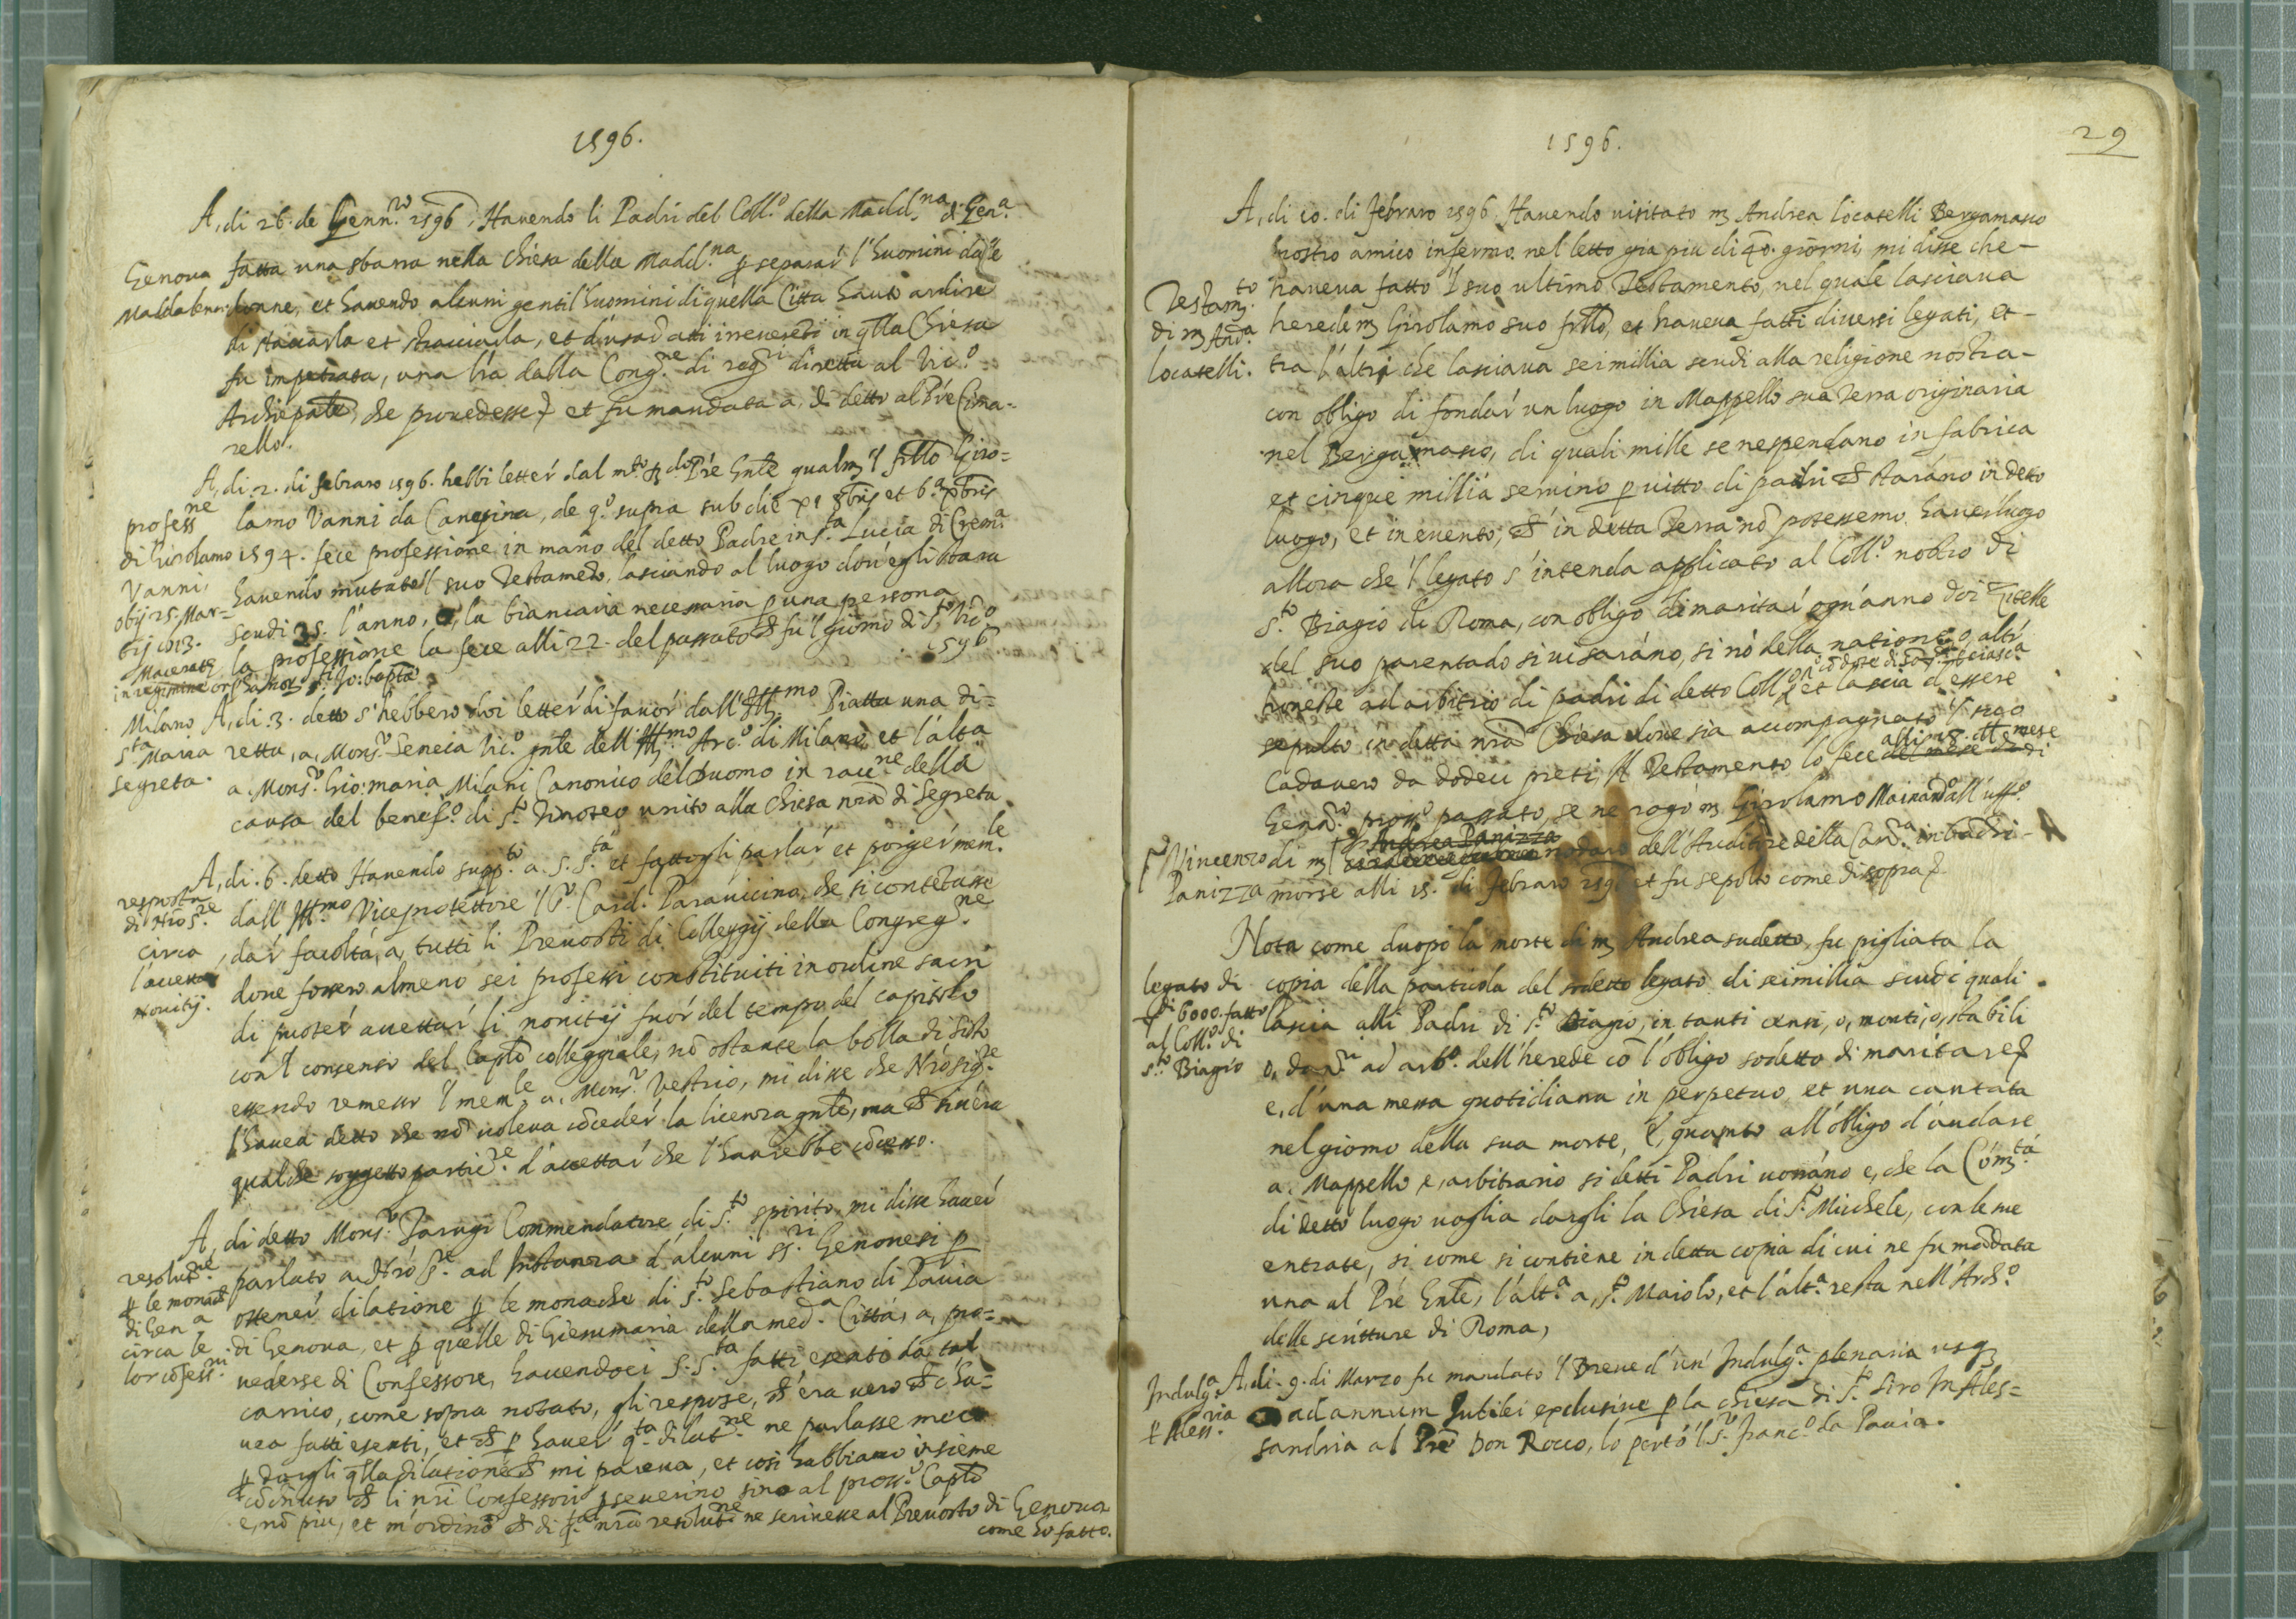 1596.
A, di 26. de Genn.ro 1596, Havendo li Padri del Coll.o della Madd.na di Gen.a
Genova
Maddalena.
fatta una sbarra nella Chiesa della Madd.na p separar l'huomini dalle
donne, et havendo alcuni gentil'huomini di quella Citta hauto ardire
di staccarla et stracciarla, et d'usar atti irreverenti in qlla Chiesa
fu impetrata, una lra dalla Cong.ne di reg.ri diretta al Vic.o
Archiepale, che provedesse et fu mandata a, di detto al Pre Cima-
rello.
A, di. 2. di febraro 1596. hebbi letter dal m.to R.do Pre Gnle qualm 'l frllo Giro=
profess.ne
di Girolamo
Vanni.
obijt 25. Mar-
tij 1613.
Maceratae
in regimine
lamo Vanni da Canepina, de q.o supra sub die et 6.a Xbris
1594. fece professione in mano del detto Padre in s.ta Lucia di Crem.a
havendo mutato 'l suo Testamento, lasciando al luogo dov'egli stara
scudi 25. l'anno, o, la biancaria necessaria p una persona
la professione la fece alli 22. del passato ch fu 'l giorno di S.to Vic.o
1596.
Milano
S.ta Maria
segreta.
A, di. 3. detto s'hebbero doi letter di favor dall'Ill.mo Piatta una di=
retta, a, Mons.r Seneca Vic.o gnle dell'Ill.mo Arc.o di Milano, et l'altra
a. Mons.r Gio: maria Milani Canonico del Duomo in racc.ne della
causa del benef.o di S.to Timoteo unito alla Chiesa nra di Segreta.
A, di. 6. detto Havendo supp.to a. S. S.tà et fattogli parlar et porger mem.le
resposta
di Nro S.re
circa
l'accettar
novitij.
dall'Ill.mo Viceprotettore 'l S.r Card. Paravicino, che si contetasse
dar facoltà, a, tutti li Prevosti di Colleggij della Congreg.ne
dove fossero almeno sei professi constituiti in ordine sacri
di puoter accettar li novitij fuor del tempo del capitolo
con 'l consenso del Caplo colleggiale, nō ostante la bolla di Sisto
essendo remesso 'l mem.le a. Mons.r Vestrio, mi disse che Nro Sig.re
l'havea detto che nō voleva cōceder la licenza gnle, ma ch s'vi era
qualche soggetto partic.re d'accettar che l'haverebbe cōcesso.
A, di detto Mons.r Tarugi Commendatore di S.to Spirito mi disse haver
resolut.ne
p le monache
di Gen.a
circa le
lor cōfess.ri
parlato a Nro S.re ad Instanza d'alcuni SS.ri Genovesi p
ottener dilatione p le monache di S.to Sebastiano di Pavia
di Genova, et p quelle di Giesumaria della med.a Città, a, pro=
vederse di Confessore, havendoci S. S.tà fatti esenti da tal
carrico, come sopra notato, gli respose, ch'era vero ch c'ha=
vea fatti esenti, et ch p haver q.ta dilat.ne ne parlasse meco
p dargli qlla dilatione ch mi pareva, et cosi habbiamo insieme
cōcluso ch li nri Confessori pseverino sino al pross.o Caplo
e, nō piu, et m'ordinò ch di q.ta nra resolut.ne ne scrivesse al Prevosto di Genova
come hò fatto.
1596.
29
A, di 10. di Febraro 1596. Havendo visitato m Andrea Locatelli Bergamasco
nostro amico infermo nel letto gia piu di 40. giorni, mi disse che-
Testam.to
di m And.a
Locatelli.
haveva fatto 'l suo ultimo Testamento, nel quale lasciava
herede m Girolamo suo frllo, et haveva fatti diversi legati, et-
tra l'altri che lasciava seimillia scudi alla religione nostra-
con obligo di fondar un luogo in Mappello sua Terra originaria
nel Bergamasco, di quali mille se ne spendano in fabrica
et cinque millia servino p vitto di padri ch staràno in detto
luogo, et in evento, ch' in detta Terra nō potessemo haver luogo
allora che 'l legato s'intenda applicato al Coll.o nostro di
S.to Biagio di Roma, con obligo di maritar ogn'anno doi Zitelle
del suo parentado si vi saràno, si nò della natione, o, altr
honeste ad arbitrio di padri di detto Coll.o et lascia d'essere
sepulto in detta nra Chiesa dove sia accompagnato 'l suo
Cadavero da dodeci preti, Il Testamento lo fece alli 18. del mese di
Genn.ro pross.o passato, se ne rogò m Girolamo Mainardo all'uff.o
Vincenzo
Panizza
di m Andrea Panizza nodaro dell'Auditore della Cam.ra in banchi-
morse alli 15. di Febraro 1596 et fu sepolto come di sopra
Nota come duopò la morte di m Andrea sudetto, fu pigliata la
legato di
di 6000. fatto
al Coll.o di
S.to Biagio
copia della particola del sodetto legato di seimillia scudi quali
lascia alli Padri di S.to Biagio, in tanti censi, o, monti, o, stabili
o, dan.ri ad arb.o dell'herede cō l'obligo sodetto di maritare
e, d'una messa quotidiana in perpetuo et una cantata
nel giorno della sua morte, E, quanto all'obligo d'andare
a. Mappello e, arbitrario si detti Padri vorràno e, che la Com.tà
di detto luogo voglia dargli la Chiesa di S.to Michele, con le sue
entrate, si come si contiene in detta copia di cui ne fu mādata
una al Pre Gnle, l'alt.a a, S.to Maiolo, et l'alt.a resta nell'Arch.o
delle scritture di Roma,
Indulg.a
p Aless.ria
A, di. 9. di Marzo fu mandato 'l Breve d'un' Indulg.a plenaria usq
ad annum Iubilei exclusive p la chiesa di S.to Siro In Ales=
sandria al Pre Don Rocco, lo portò 'l S.r Franc.o da Pavia.